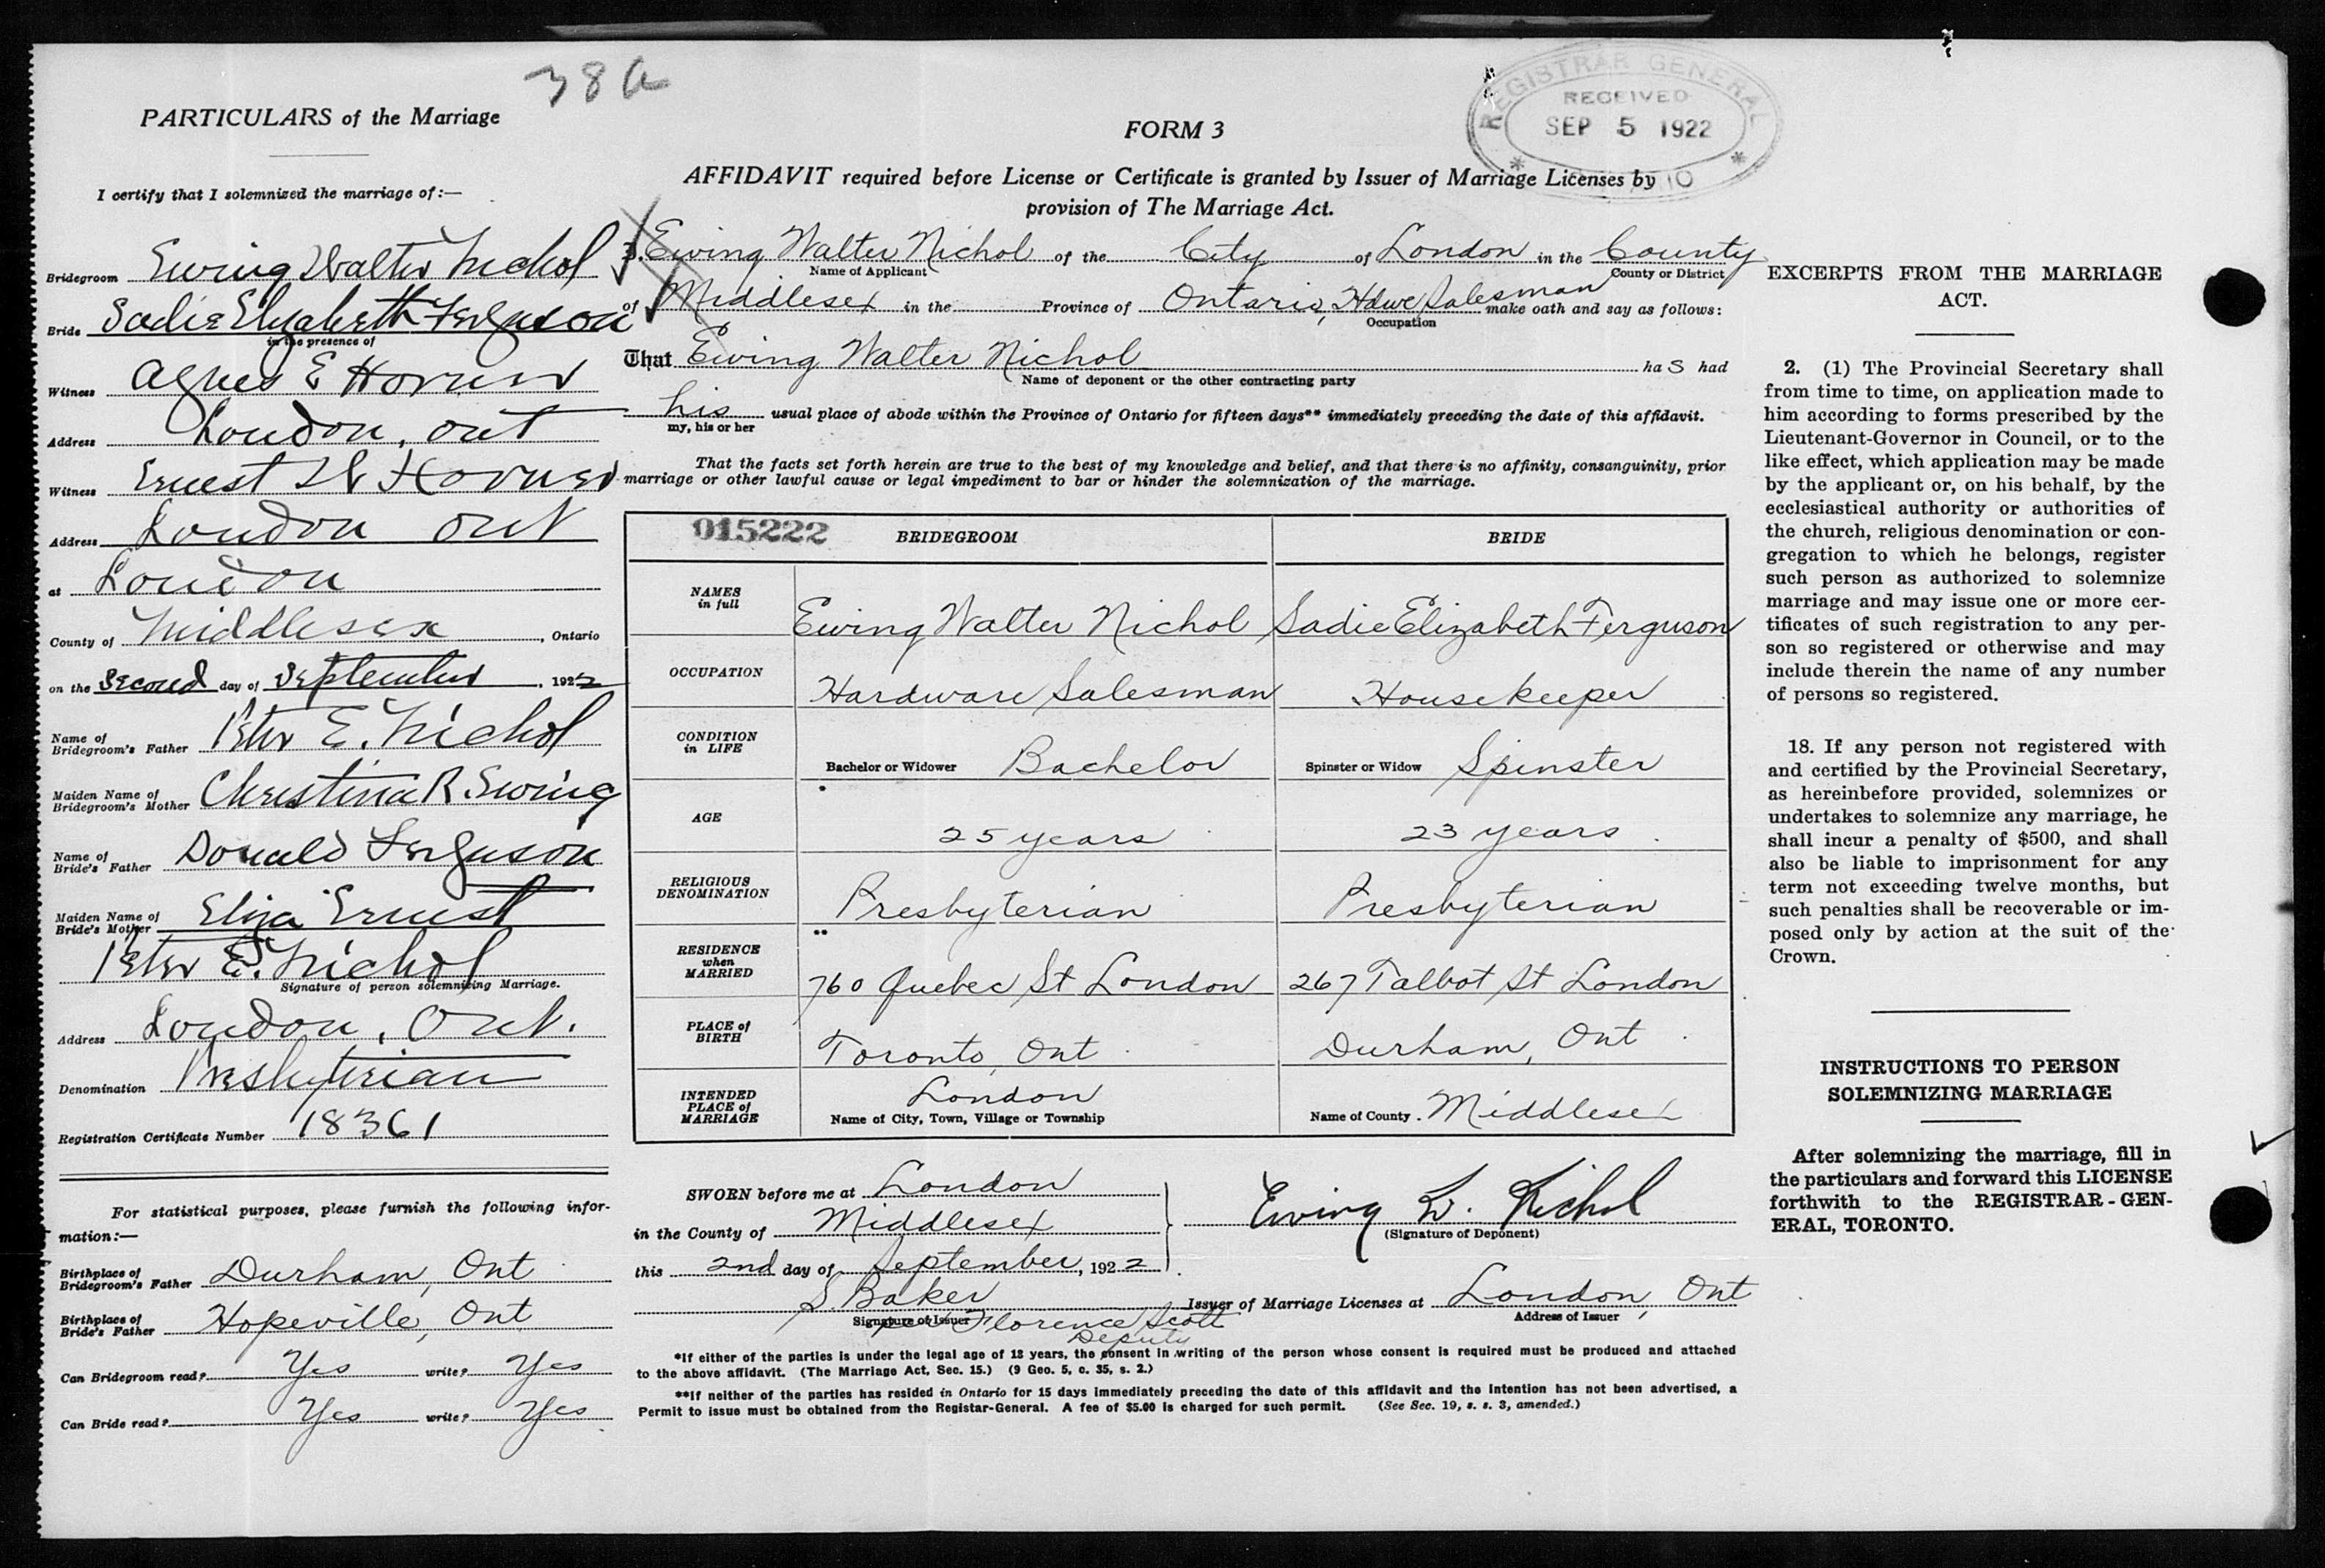 38a
PARTICULARS of the Marriage
I certify that I solemnized the marriage of:—
Bridegroom Ewing Walter Nichol
Bride Sadie Elizabeth Ferguson
in the presence of
Witness Agnes E Horner
Address London, Ont
Witness Ernest W Horner
Address London Ont
at London
County of Middlesex, Ontario
on the Second day of September, 1922
Name of
Bridegroom's Father Peter E. Nichol
Maiden Name of
Bridegroom's Mother Christina R. Ewing
Name of
Bride's Father Donald Ferguson
Maiden Name of
Bride's Mother Eliza Ernest
Peter E. Nichol
Signature of person solemnizing Marriage.
Address London, Ont.
Denomination Presbyterian
Registration Certificate Number 18361
For statistical purposes, please furnish the following infor-
mation:—
Birthplace of
Bridegroom's Father Durham, Ont
Birthplace of
Bride's Father Hopeville, Ont
Can Bridegroom read? Yes write? Yes
Can Bride read? Yes write? Yes
REGISTRAR GENERAL
RECEIVED
SEP 5 1922
FORM 3
AFFIDAVIT required before License or Certificate is granted by Issuer of Marriage Licenses by
provision of The Marriage Act.
I, Ewing Walter Nichol of the City of London in the County
Name of Applicant County or District
of Middlesex in the Province of Ontario, Hdwe Salesman make oath and say as follows:
Occupation
That Ewing Walter Nichol has had
Name of deponent or the other contracting party
his usual place of abode within the Province of Ontario for fifteen days** immediately preceding the date of this affidavit.
my, his or her
That the facts set forth herein are true to the best of my knowledge and belief, and that there is no affinity, consanguinity, prior
marriage or other lawful cause or legal impediment to bar or hinder the solemnization of the marriage.
015222 BRIDEGROOM BRIDE
NAMES
in full Ewing Walter Nichol Sadie Elizabeth Ferguson
OCCUPATION Hardware Salesman Housekeeper
CONDITION
in LIFE Bachelor or Widower Bachelor Spinster or Widow Spinster
AGE 25 years 23 years
RELIGIOUS
DENOMINATION Presbyterian Presbyterian
RESIDENCE
when
MARRIED 760 Quebec St London 267 Talbot St London
PLACE of
BIRTH Toronto, Ont Durham, Ont
INTENDED
PLACE of
MARRIAGE London Name of County Middlesex
Name of City, Town, Village or Township
SWORN before me at London
in the County of Middlesex
this 2nd day of September, 1922
Ewing W. Nichol
(Signature of Deponent)
S. Baker Issuer of Marriage Licenses at London, Ont
Signature of Issuer Address of Issuer
per Florence Scott
Deputy
*If either of the parties is under the legal age of 18 years, the consent in writing of the person whose consent is required must be produced and attached
to the above affidavit. (The Marriage Act, Sec. 15.) (9 Geo. 5, c. 35, s. 2.)
**If neither of the parties has resided in Ontario for 15 days immediately preceding the date of this affidavit and the intention has not been advertised, a
Permit to issue must be obtained from the Registar-General. A fee of $5.00 is charged for such permit. (See Sec. 19, s. s. 3, amended.)
EXCERPTS FROM THE MARRIAGE
ACT.
2. (1) The Provincial Secretary shall
from time to time, on application made to
him according to forms prescribed by the
Lieutenant-Governor in Council, or to the
like effect, which application may be made
by the applicant or, on his behalf, by the
ecclesiastical authority or authorities of
the church, religious denomination or con-
gregation to which he belongs, register
such person as authorized to solemnize
marriage and may issue one or more cer-
tificates of such registration to any per-
son so registered or otherwise and may
include therein the name of any number
of persons so registered.
18. If any person not registered with
and certified by the Provincial Secretary,
as hereinbefore provided, solemnizes or
undertakes to solemnize any marriage, he
shall incur a penalty of $500, and shall
also be liable to imprisonment for any
term not exceeding twelve months, but
such penalties shall be recoverable or im-
posed only by action at the suit of the
Crown.
INSTRUCTIONS TO PERSON
SOLEMNIZING MARRIAGE
After solemnizing the marriage, fill in
the particulars and forward this LICENSE
forthwith to the REGISTRAR-GEN-
ERAL, TORONTO.